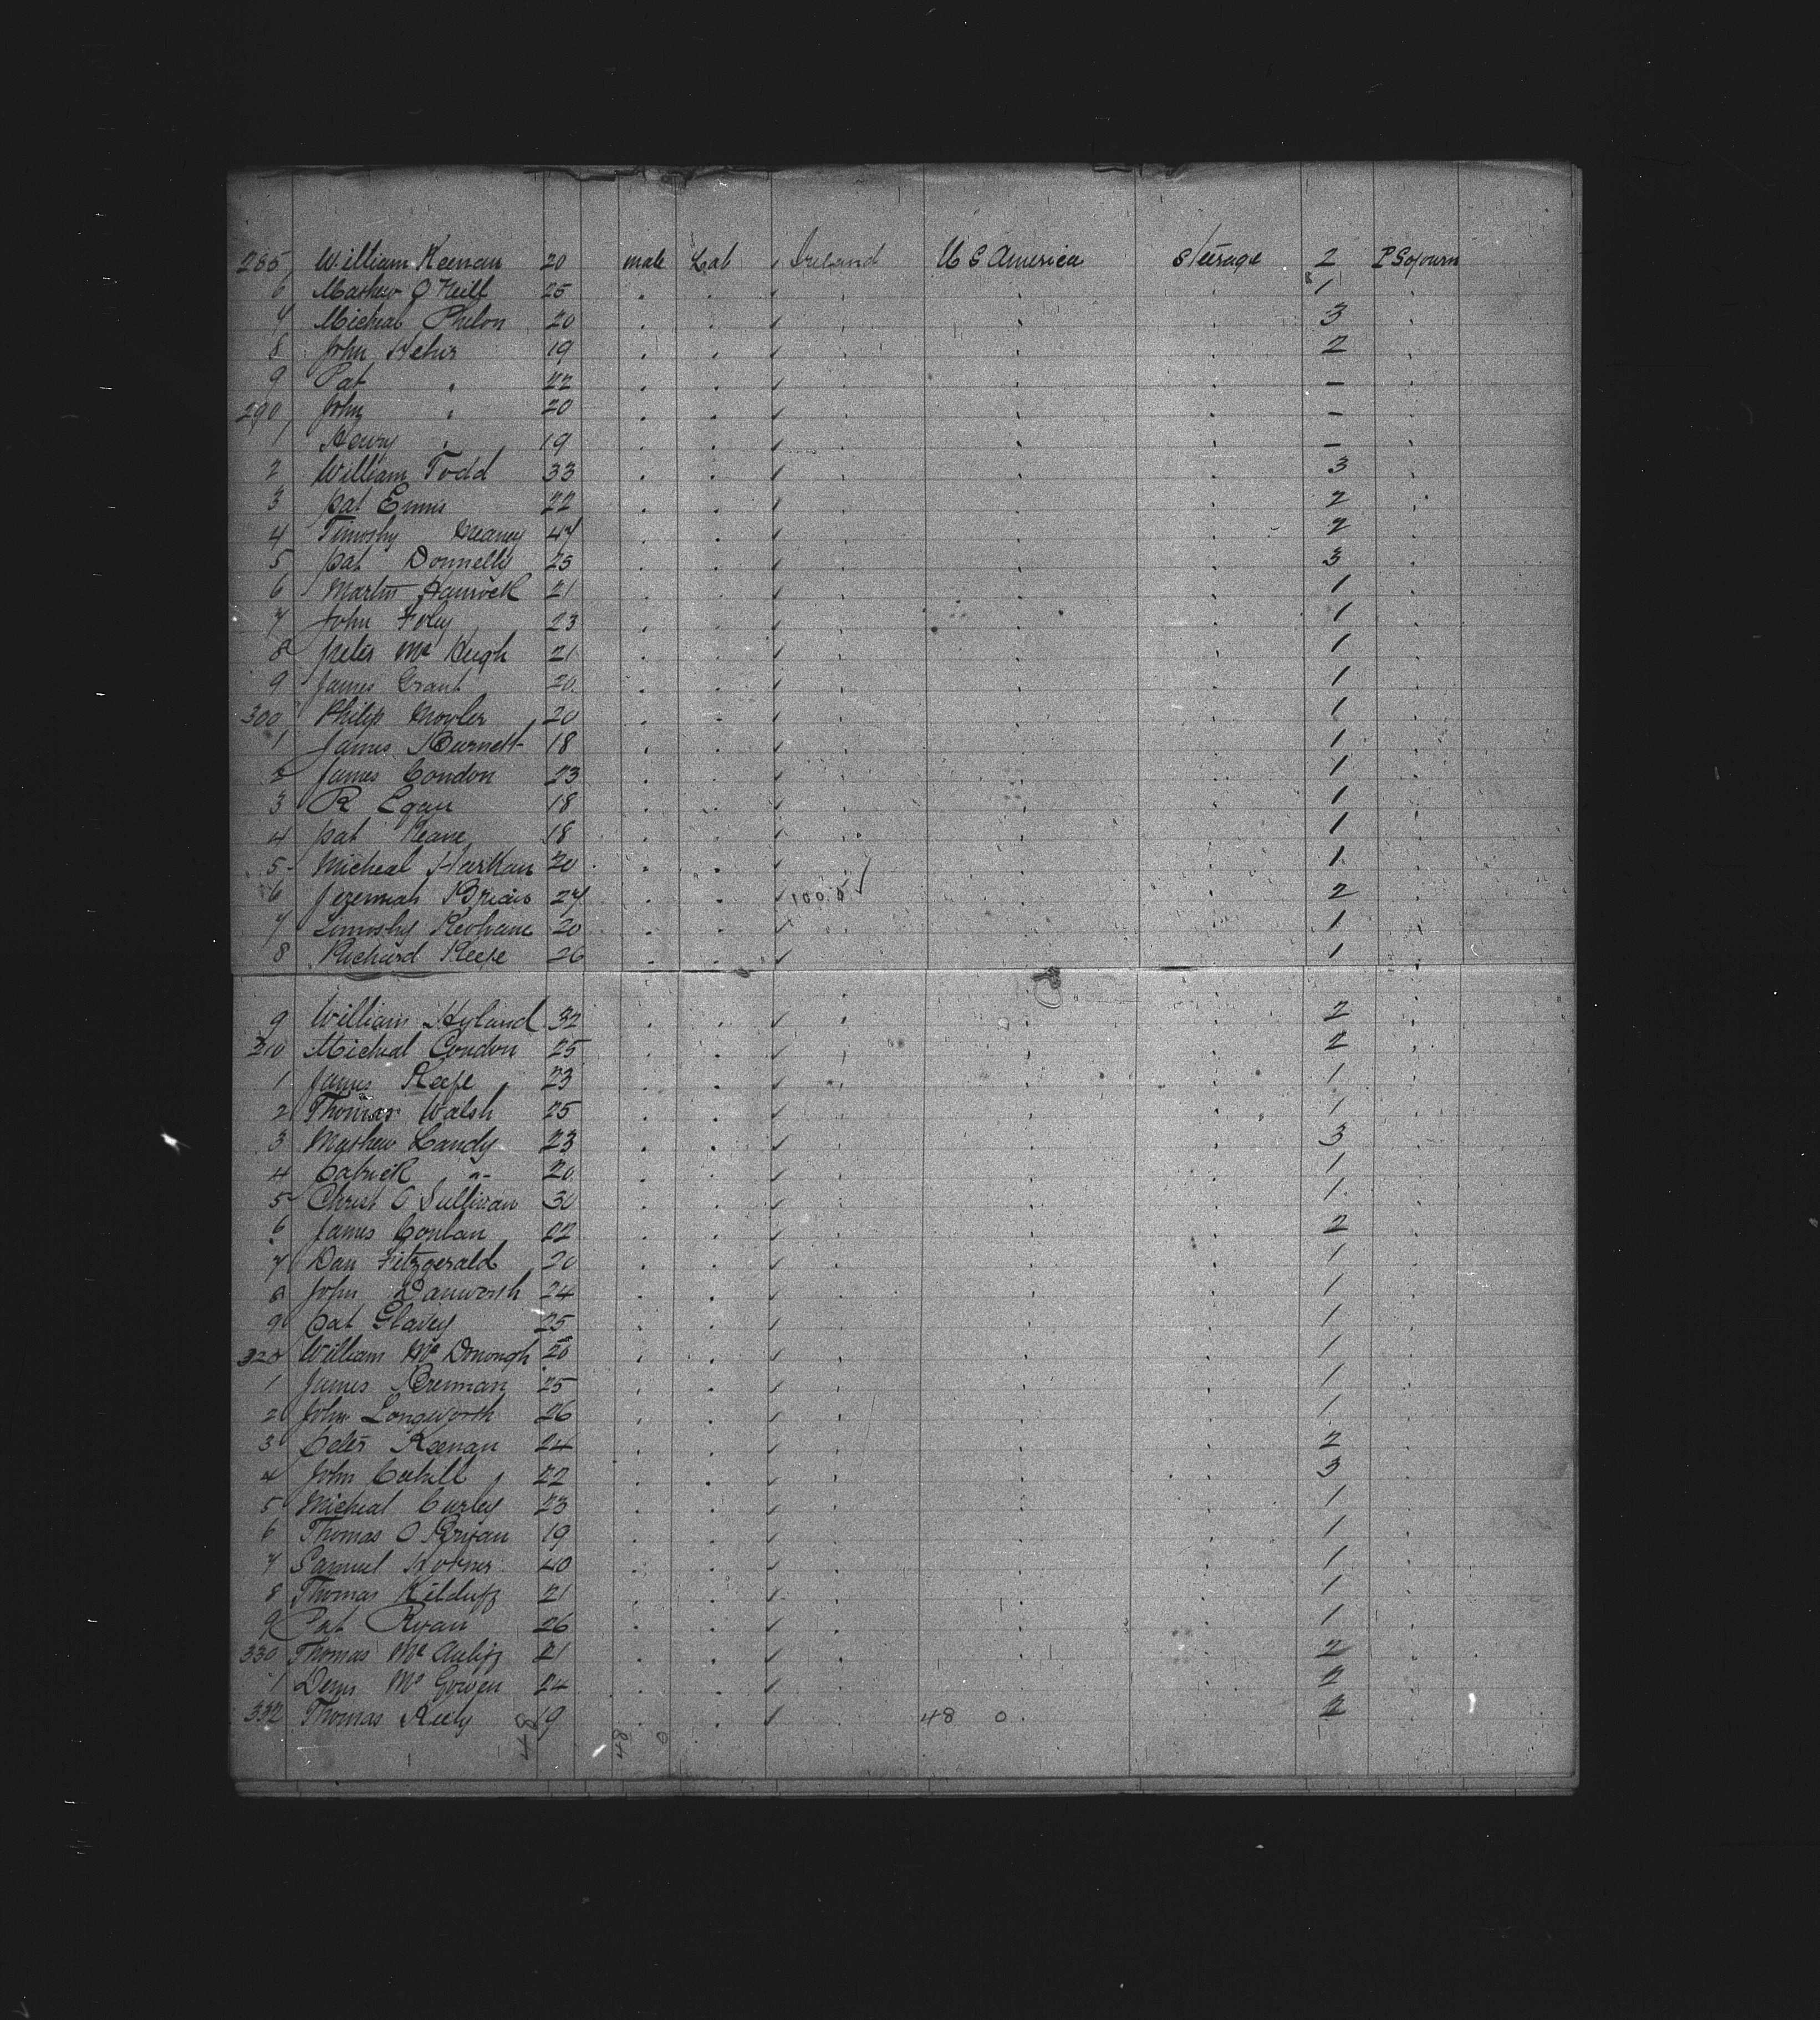 285 William Keenan 20 male Lab Ireland U S America Steerage 2 P Sojourn
6 Mathew O Neill 25 1
7 Micheal Phelon 20 3
8 John 19 2
9 Pat " 22 –
290 John " 20 –
1 Henry " 19 –
2 William Todd 33 3
3 Pat Ennis 22 2
4 Timothy 47 2
5 Pat Donnelly 25 3
6 Martin 21 1
7 John Foley 23 1
8 Peter Mc Hugh 21 1
9 James Grant 20 1
300 Philip 20 1
1 James Burnett 18 1
2 James Condon 23 1
3 R Egan 18 1
4 Pat Keane 18 1
5 Micheal Harkan 20 1
6 Jeremiah 27 2
7 Timothy Keohane 20 1
8 Richard Keefe 26 1
9 William Hyland 32 2
310 Micheal Condon 25 2
1 James Keefe 23 1
2 Thomas Walsh 25 1
3 Mathew Landy 23 3
4 Patrick " 20 1
5 Christ O Sullivan 30 1
6 James Conlan 22 2
7 Dan Fitzgerald 20 1
8 John Danworth 24 1
9 Pat Glavey 25 1
320 William Mc Donough 20 1
1 James Brennan 25 1
2 John Longworth 26 1
3 Peter Keenan 24 2
4 John Cahill 22 3
5 Micheal Curley 23 1
6 Thomas O Bryan 19 1
7 Samuel 40 1
8 Thomas Kilduff 21 1
9 Pat Ryan 26 1
330 Thomas Mc Auliff 21 2
1 Denis Mc Gowen 24 2
332 Thomas Kiely 19 48 0 2
48 48 0